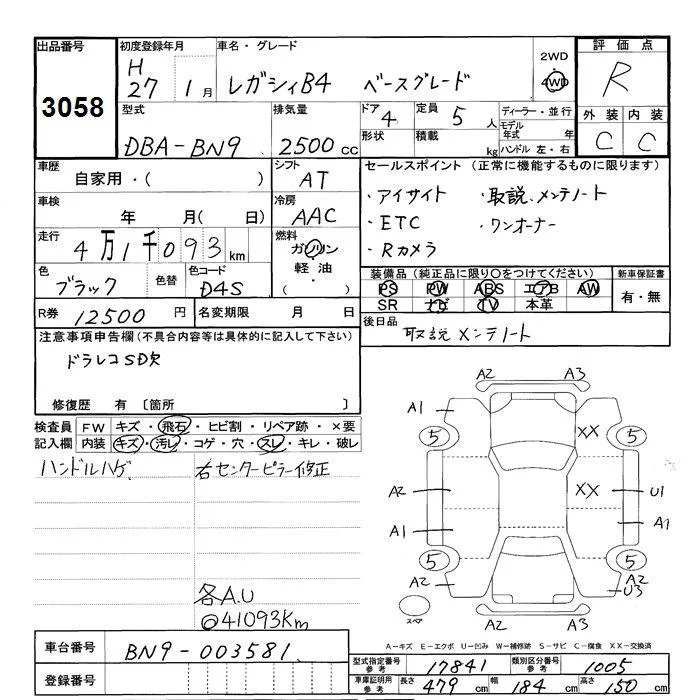 出品番号 初度登録年月 車名・グレード 2WD 評価点
3058 H 27 1月 レガシィB4 ベースグレード 4WD R
型式 排気量 ドア 定員 ディーラー・並行 外装 内装
DBA-BN9 2500cc 4 5人 モデル年式 年 C C
形状 積載 kg ハンドル 左・右
車歴 シフト セールスポイント(正常に機能するものに限ります)
自家用・( ) AT ・アイサイト ・取説、メンテノート
車検 冷房 ・ETC ・ワンオーナー
年 月( 日) AAC ・Rカメラ
走行 燃料
4万1千093km ガソリン・軽油・( )
装備品(純正品に限り○をつけてください) 新車保証書
色 色替 色コード PS PW ABS エアB AW 有・無
ブラック D4S SR ナビ TV 本革
R券 12500円 名変期限 月 日 後日品 取説 メンテノート
注意事項申告欄(不具合内容等は具体的に記入して下さい)
ドラレコSD欠
修復歴 有 〔箇所 〕
検査員 FW キズ・飛石・ヒビ割・リペア跡・×要
記入欄 内装 キズ・汚レ・コゲ・穴・スレ・キレ・破レ
ハンドルハゲ、 右センターピラー修正
各A.U
◎41093Km
A2 A3
A1
5 XX 5
A2 XX U1
A1 A1
5 5
A2 A2
U3
A2 A3
スペア
A-キズ E-エクボ U-凹み W-補修跡 S-サビ C-腐食 XX-交換済
車台番号 BN9-003581
登録番号
型式指定番号 参考 17841 類別区分番号 参考 1005
車庫証明用 参考 長さ 479cm 幅 184cm 高さ 150cm